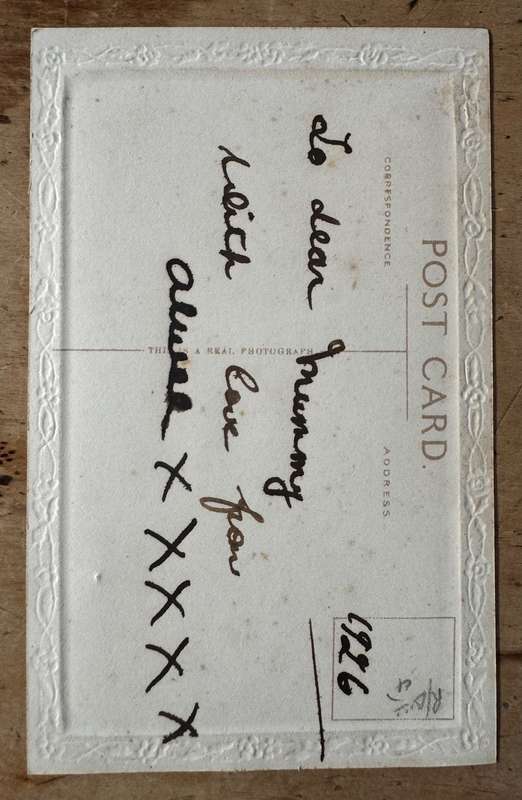 POST CARD.
CORRESPONDENCE
ADDRESS
1926
To dear Mummy
with love from
X X X X X
THIS IS A REAL PHOTOGRAPH